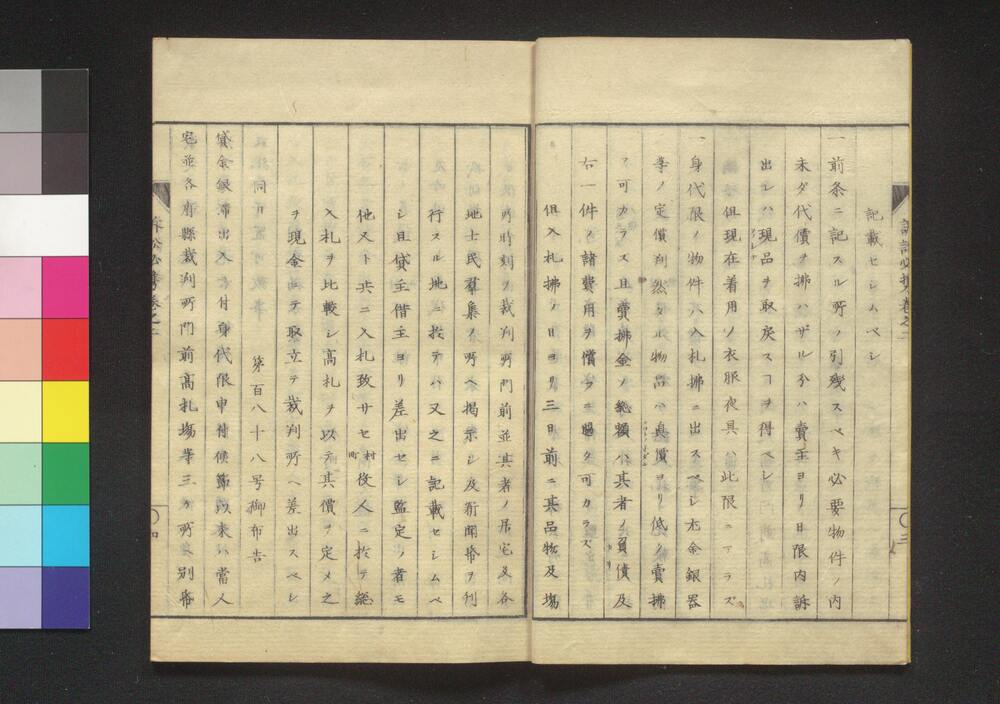 記載セシムベシ
一前条ニ記スル所ノ引残スベキ必要物件ノ内
未ダ代價ヲ拂ハザル分ハ賣主ヨリ日限内訴
出レハ現品ヲ取戻スコヲ得ベシ
但現在着用ノ衣服夜具ハ此限ニアラズ
一身代限ノ物件ハ入札拂ニ出スベシ尤金銀器
等ノ定價判然タル物品ハ真價ヨリ低ク賣拂
フ可カラス且賣拂金ノ総額ハ其者ノ負債及
右一件ノ諸費用ヲ償フニ踰ク可カラズ
但入札拂ノ日ヨリ三日前ニ其品物及塲
所時刻ヲ裁判所門前並其者ノ居宅及各
地士民羣集ノ所ヘ掲示シ及新聞帋ヲ刊
行スル地ニ於テハ又之ニ記載セシムベ
シ且貸主借主ヨリ差出セシ監定ノ者モ
他又ト共ニ入札致サセ村町役人ニ於テ総
入札ヲ比較シ高札ヲ以テ其價ヲ定メ之
ヲ現金ニテ取立テ裁判所ヘ差出スベシ
同日 第百八十八号御布告
貸金銀滞出入ニ付身代限申付候節以来ハ當人
宅並各府縣裁判所門前高札塲等三ヶ所ヘ別帋
訴訟必携巻之二
〇三
〇四